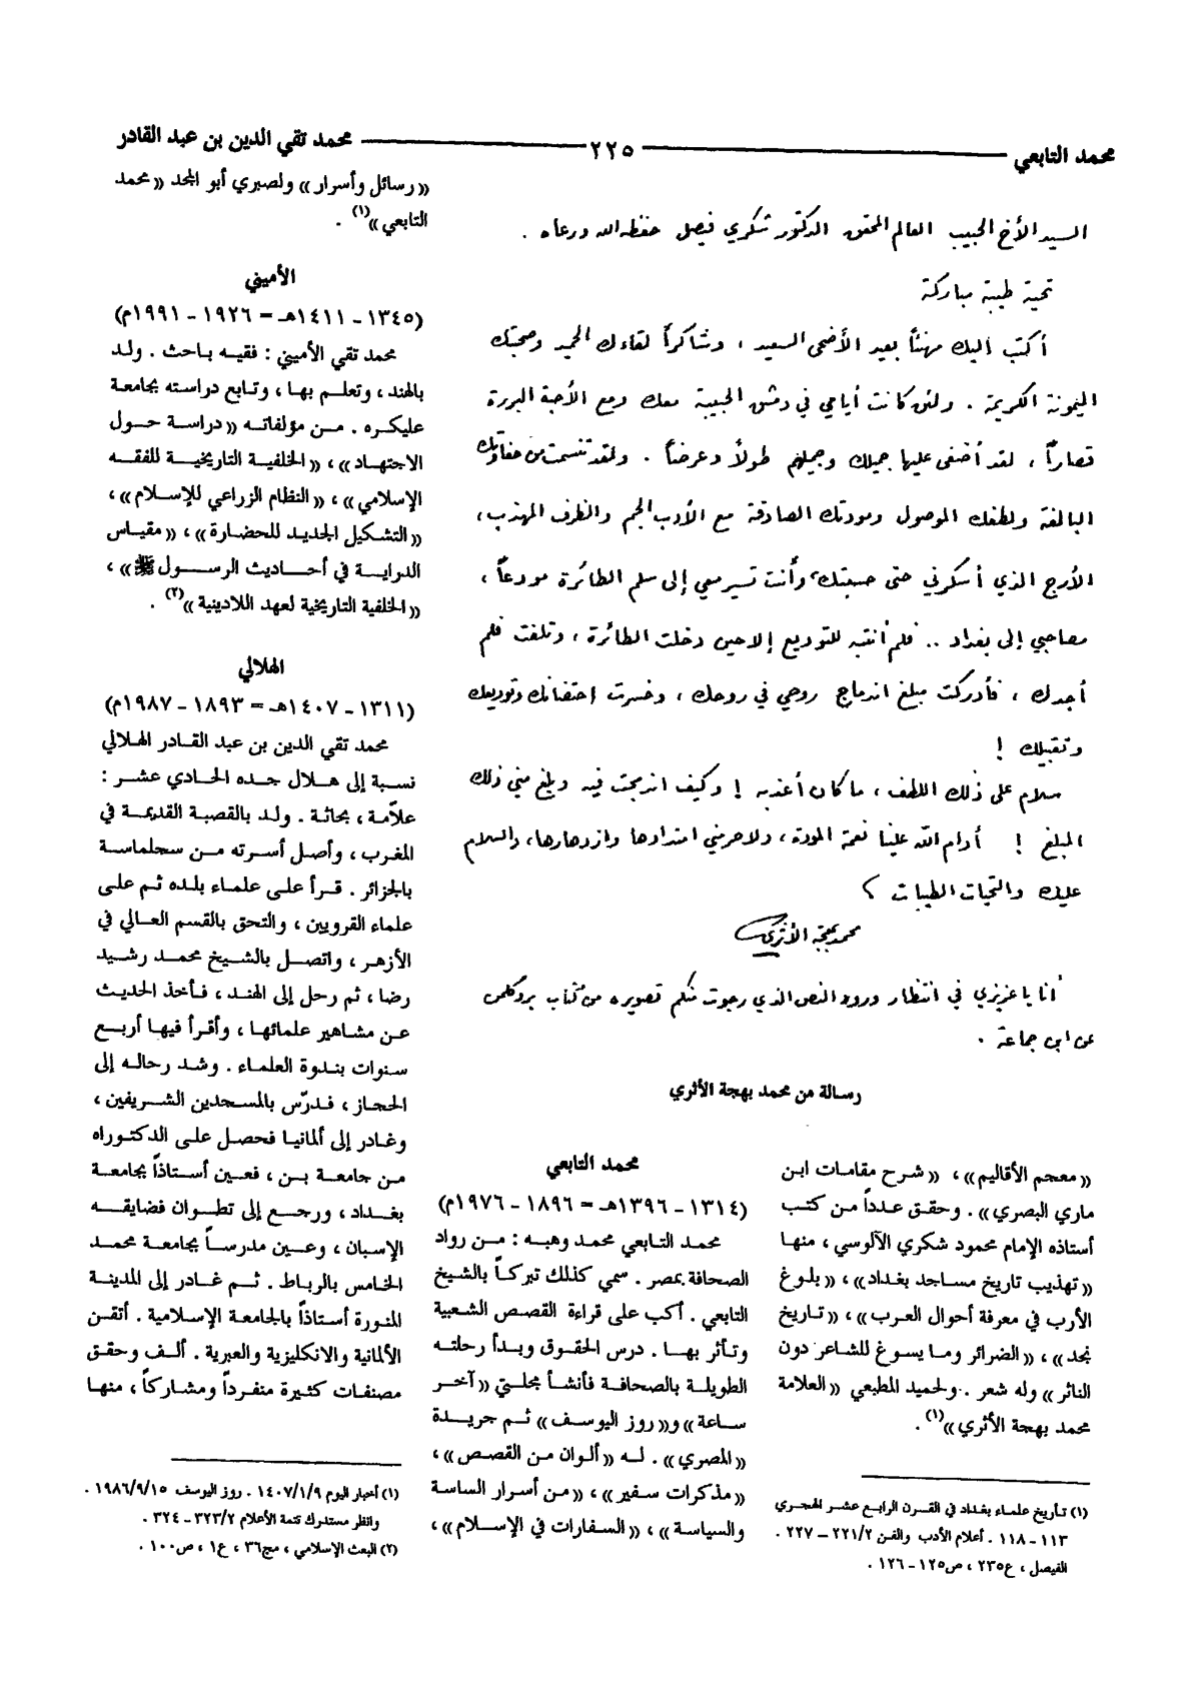 محمد التابعي
٢٢٥
محمد تقي الدين بن عبد القادر
السيد الأخ الحبيب العالم المحقق الدكتور شكري فيصل حفظه الله ورعاه .
تحية طيبة مباركة
أكتب اليك مهنئاً بعيد الأضحى السعيد ، وشاكراً لقاءك الحميد وصحبتك
الميمونة الكريمة . ولئن كانت أيامي في دمشق الحبيبة معك ومع الأحبة البررة
قصاراً ، لقد أضفى عليها جميلك وجميلهم طولاً وعرضاً . ولقد تنسمت من حفاوتك
البالغة ولطفك الموصول ومودتك الصادقة مع الأدب الجم والظرف المهذب ،
الأرج الذي أسكرني حتى حسبتك وأنت تسير معي إلى سلم الطائرة مودعاً ،
مصاحبي إلى بغداد .. فلم أنتبه للتوديع إلا حين دخلت الطائرة ، وتلفت فلم
أجدك ، فأدركت مبلغ اندماج روحي في روحك ، وخسرت احتضانك وتوديعك
وتقبيلك !
سلام على ذلك اللطف ، ما كان أعذبه ! وكيف اندمجت فيه وبلغ مني ذلك
المبلغ ! أدام الله علينا نعمة المودة ، ولا حرمني امتدادها وازدهارها ، والسلام
عليك والتحيات الطيبات
محمد بهجة الأثري
أنا يا عزيزي في انتظار ورود النص الذي رجوت منكم تصويره من كتاب بروكلمن
عن ابن جماعة .
رسالة من محمد بهجة الأثري
« معجم الأقاليم» ، « شرح مقامات ابن
ماري البصري» . وحقق عدداً من كتب
أستاذه الإمام محمود شكري الآلوسي ، منها
« تهذيب تاريخ مساجد بغداد» ، « بلوغ
الأرب في معرفة أحوال العرب» ، « تاريخ
نجد» ، « الضرائر وما يسوغ للشاعر دون
الناثر» وله شعر . ولحميد المطبعي « العلامة
محمد بهجة الأثري»(١) .
(١) تأريخ علماء بغداد في القرن الرابع عشر الهجري
١١٣ - ١١٨ . أعلام الأدب والفن ٢٢١/٢ – ٢٢٧ .
الفيصل ، ع٢٣٥ ، ص١٢٥ - ١٢٦ .
محمد التابعي
(١٣١٤ - ١٣٩٦هـ = ١٨٩٦ - ١٩٧٦م)
محمد التابعي محمد وهبه : من رواد
الصحافة بمصر . سمي كذلك تبركاً بالشيخ
التابعي . أكب على قراءة القصص الشعبية
وتأثر بها . درس الحقوق وبدأ رحلته
الطويلة بالصحافة فأنشأ مجلتي « آخر
ساعة» و« روز اليوسف» ثم جريدة
« المصري» . له « ألوان من القصص» ،
« مذكرات سفير» ، « من أسرار الساسة
والسياسة» ، « السفارات في الإسلام» ،
« رسائل وأسرار» ولصبري أبو المجد « محمد
التابعي»(١) .
الأميني
(١٣٤٥ - ١٤١١هـ = ١٩٢٦ - ١٩٩١م)
محمد تقي الأميني : فقيه باحث . ولد
بالهند ، وتعلم بها ، وتابع دراسته بجامعة
عليكره . من مؤلفاته « دراسة حول
الاجتهاد» ، « الخلفية التاريخية للفقه
الإسلامي» ، « النظام الزراعي للإسلام» ،
« التشكيل الجديد للحضارة» ، « مقياس
الدراية في أحاديث الرسول ﷺ» ،
« الخلفية التاريخية لعهد اللادينية»(٢) .
الهلالي
(١٣١١ - ١٤٠٧هـ = ١٨٩٣ - ١٩٨٧م)
محمد تقي الدين بن عبد القادر الهلالي
نسبة إلى هلال جده الحادي عشر :
علاّمة ، بحاثة . ولد بالقصبة القديمة في
المغرب ، وأصل أسرته من سجلماسة
بالجزائر . قرأ على علماء بلده ثم على
علماء القرويين ، والتحق بالقسم العالي في
الأزهر ، واتصل بالشيخ محمد رشيد
رضا ، ثم رحل إلى الهند ، فأخذ الحديث
عن مشاهير علمائها ، وأقرأ فيها أربع
سنوات بندوة العلماء . وشد رحاله إلى
الحجاز ، فدرّس بالمسجدين الشريفين ،
وغادر إلى ألمانيا فحصل على الدكتوراه
من جامعة بن ، فعين أستاذاً بجامعة
بغداد ، ورجع إلى تطوان فضايقه
الإسبان ، وعين مدرساً بجامعة محمد
الخامس بالرباط . ثم غادر إلى المدينة
المنورة أستاذاً بالجامعة الإسلامية . أتقن
الألمانية والانكليزية والعبرية . ألف وحقق
مصنفات كثيرة منفرداً ومشاركاً ، منها
(١) أخبار اليوم ١٤٠٧/١/٩ . روز اليوسف ١٩٨٦/٩/١٥ .
وانظر مستدرك تتمة الأعلام ٣٢٣/٢ - ٣٢٤ .
(٢) البعث الإسلامي ، مج٣٦ ، ع١ ، ص١٠٠ .